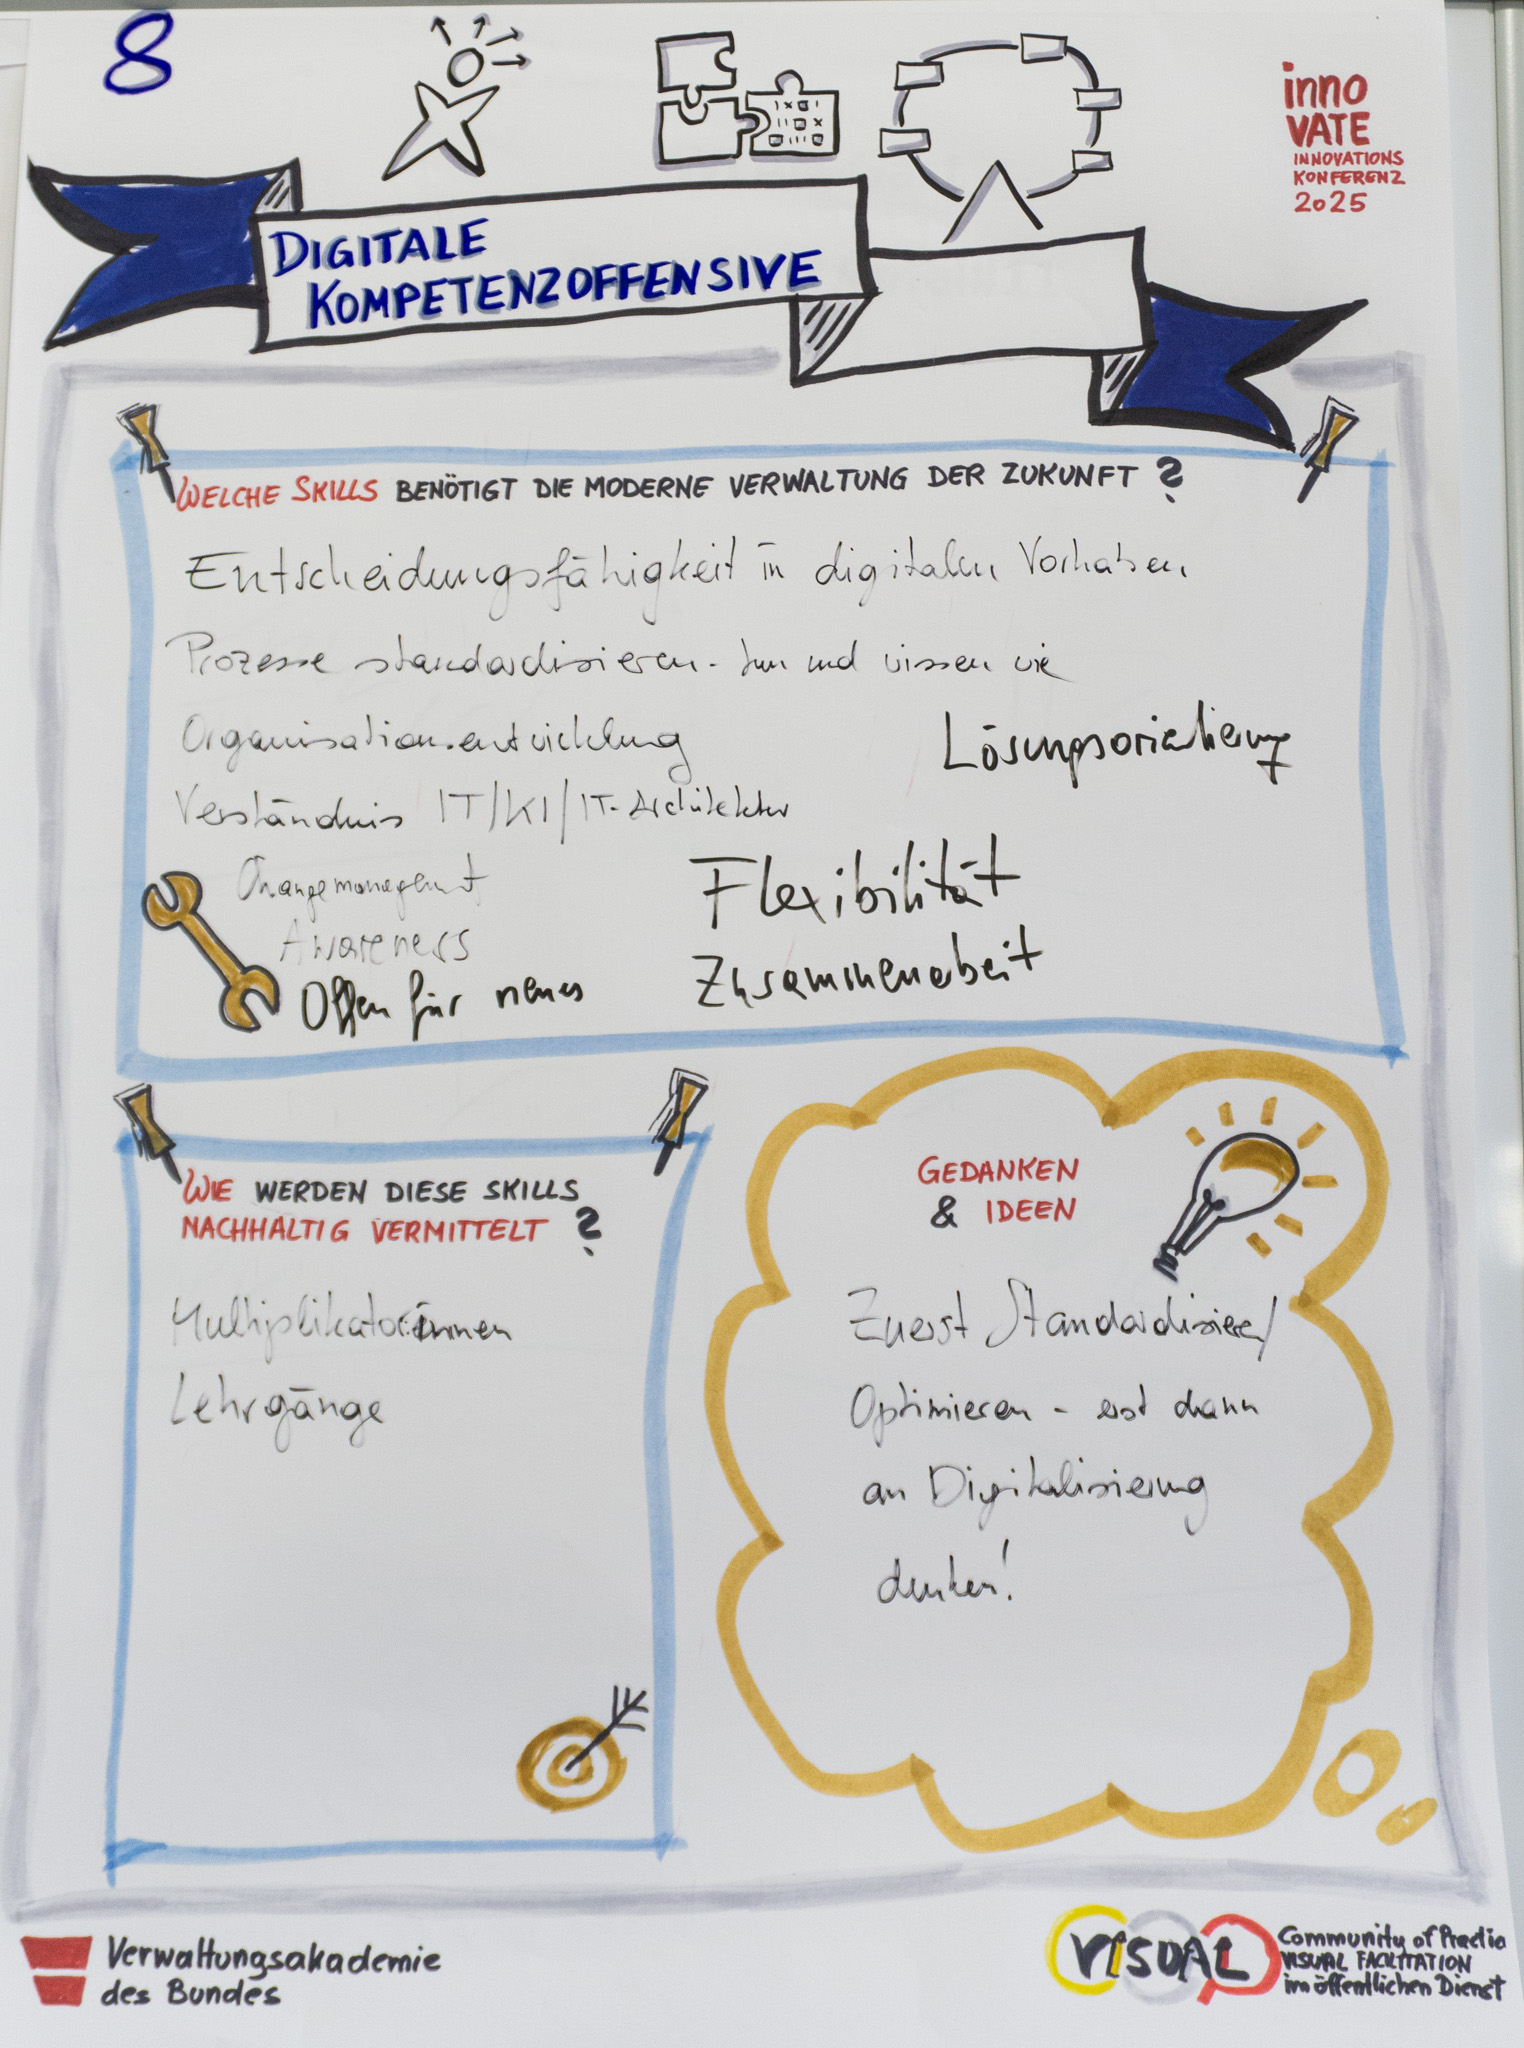 8
inno
VATE
INNOVATIONS
KONFERENZ
2025
DIGITALE
KOMPETENZOFFENSIVE
WELCHE SKILLS BENÖTIGT DIE MODERNE VERWALTUNG DER ZUKUNFT?
Entscheidungsfähigkeit in digitalen Vorhaben
Prozesse standardisieren - tun und wissen wie
Organisationsentwicklung
Lösungsorientierung
Verständnis IT/KI/IT-Architektur
Changemanagement
Flexibilität
Awareness
Zusammenarbeit
Offen für neues
WIE WERDEN DIESE SKILLS
NACHHALTIG VERMITTELT?
Multiplikatorinnen
Lehrgänge
GEDANKEN
& IDEEN
Zuerst Standardisieren/
Optimieren - erst dann
an Digitalisierung
denken!
Verwaltungsakademie
des Bundes
VISUAL
Community of Practice
VISUAL FACILITATION
im öffentlichen Dienst